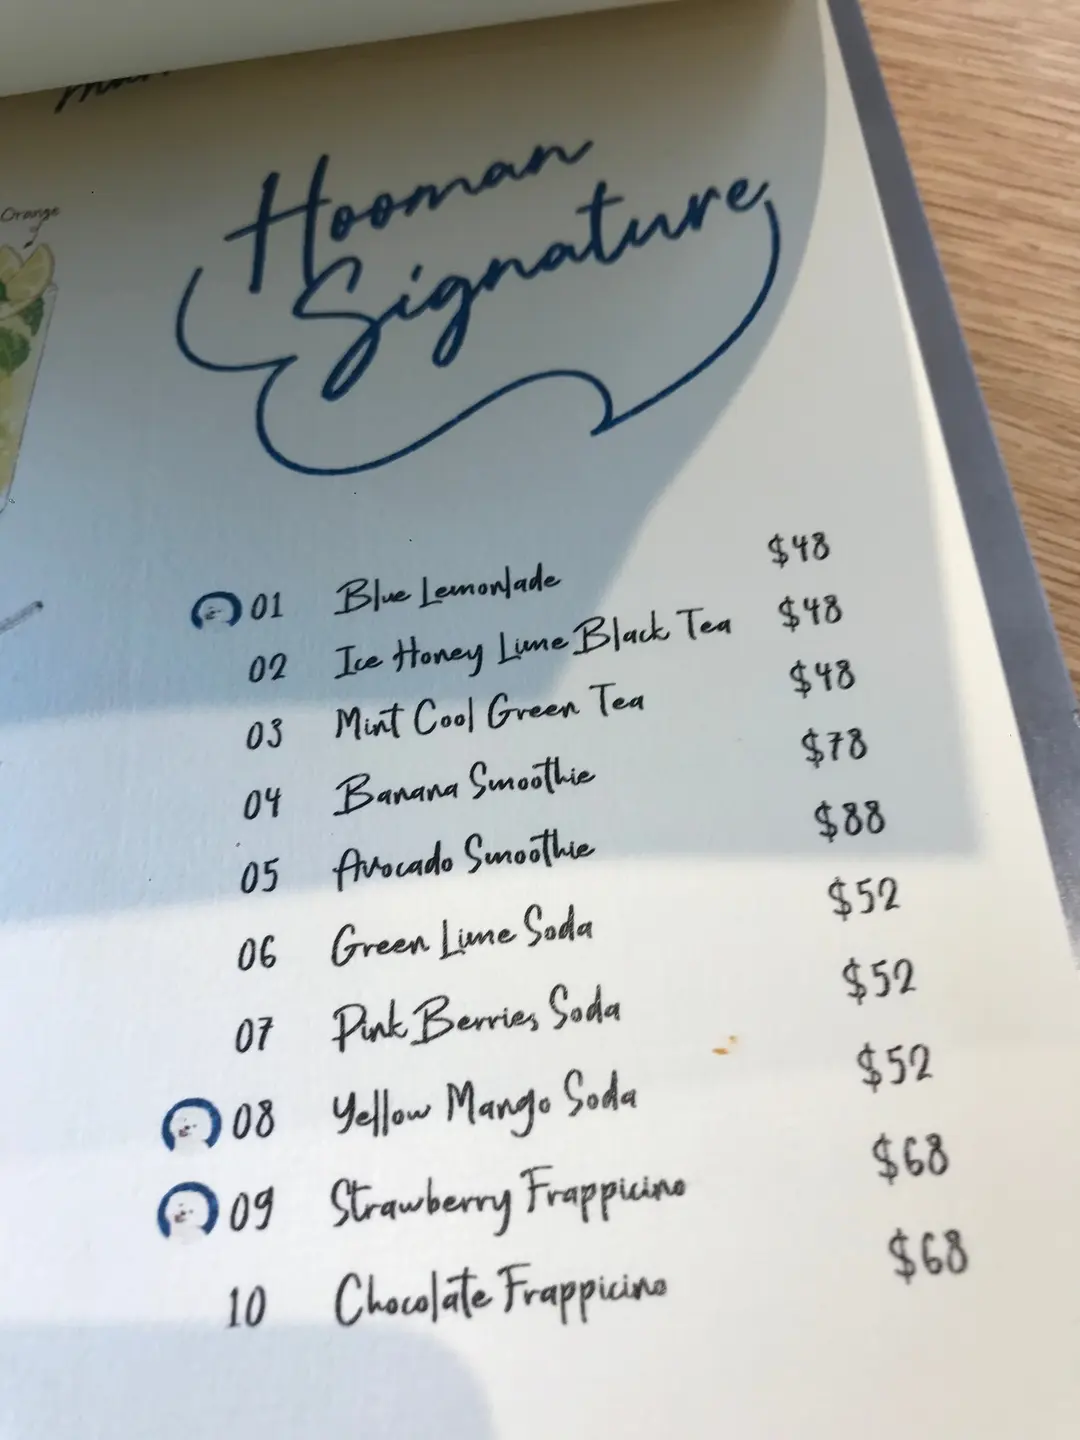 Orange
Hooman
Signature
01 Blue Lemonlade $48
02 Ice Honey Lime Black Tea $48
03 Mint Cool Green Tea $48
04 Banana Smoothie $78
05 Avocado Smoothie $88
06 Green Lime Soda $52
07 Pink Berries Soda $52
08 Yellow Mango Soda $52
09 Strawberry Frappicino $68
10 Chocolate Frappicino $68